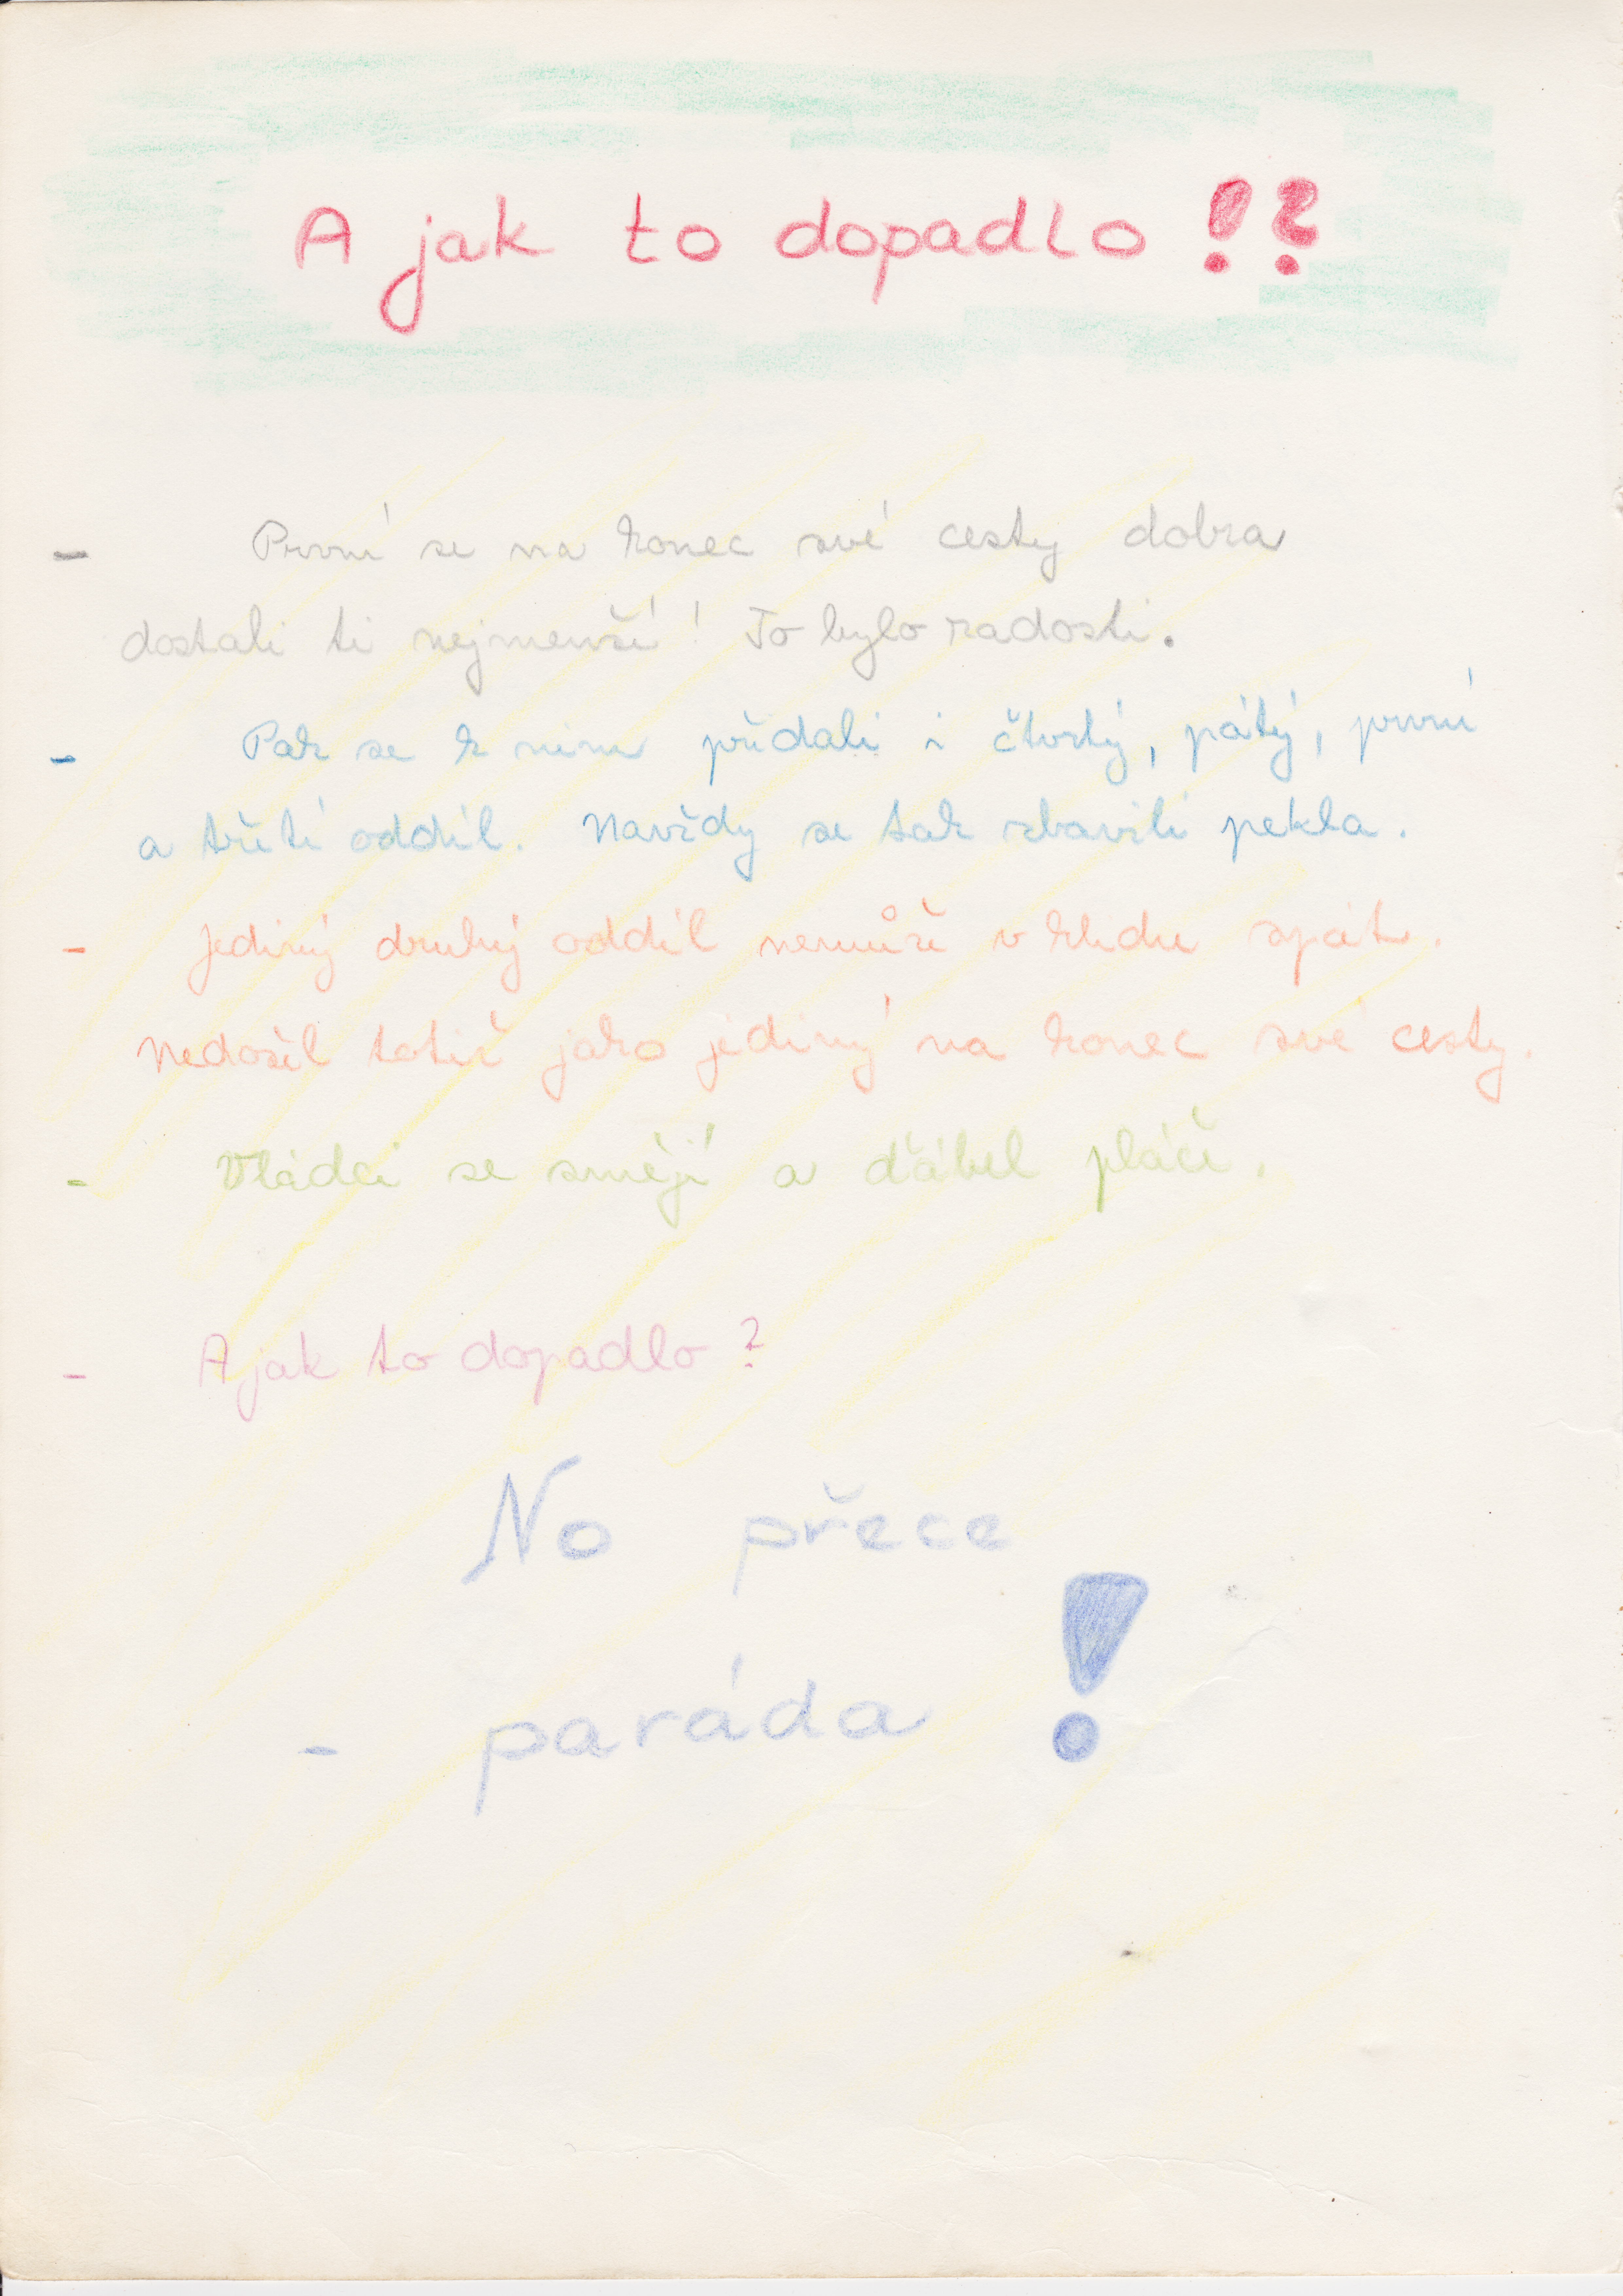 A jak to dopadlo !?
- První se na konec své cesty dobra
dostali ti nejmenší! To bylo radosti.
- Pak se k nim přidali i čtvrtý, pátý, první
a třetí oddíl. Navždy se tak zbavili pekla.
- Jediný druhý oddíl nemůže v klidu spát.
Nedošel totiž jako jediný na konec své cesty.
- Vládci se smějí a ďábel pláče.
- A jak to dopadlo ?
No přece
- paráda !